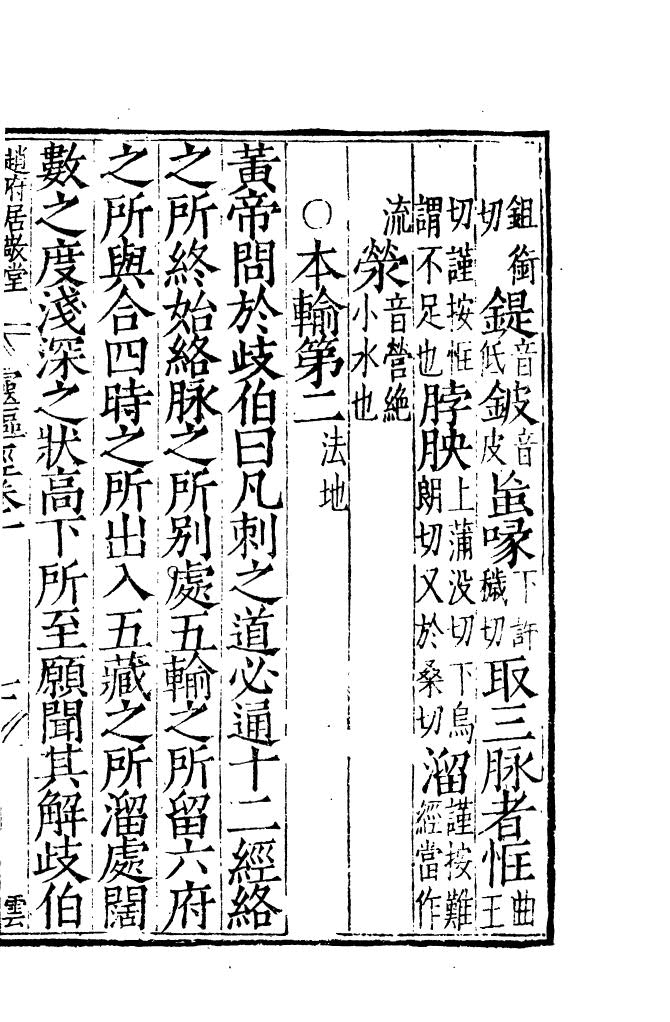 鉏銜切鍉音低鈹音皮䖟喙下許穢切取三脉者恇曲王
切謹按恇謂不足也脖胦上蒲没切下烏朗切又於桑切溜謹按難經當作
流滎音營絶小水也
○本輸第二法地
黃帝問於歧伯曰凡刺之道必通十二經絡
之所終始絡脉之所别處五輸之所留六府
之所與合四時之所出入五藏之所溜處闊
數之度淺深之狀高下所至願聞其解歧伯
趙府居敬堂 靈樞經卷一 雲